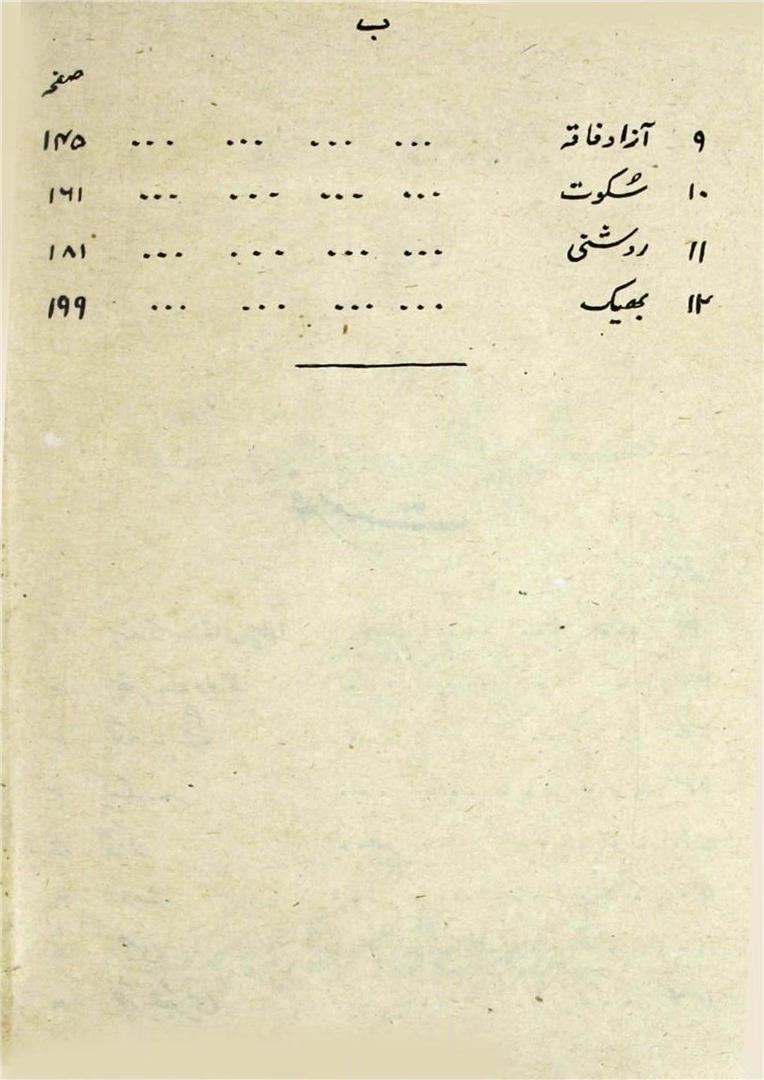 ب
صفحہ
۹ آزاد فاقہ ... ... ... ... ۱۴۵
۱۰ سُکوت ... ... ... ... ۱۶۱
۱۱ روشنی ... ... ... ... ۱۸۱
۱۲ بھیک ... ... ... ... ۱۹۹